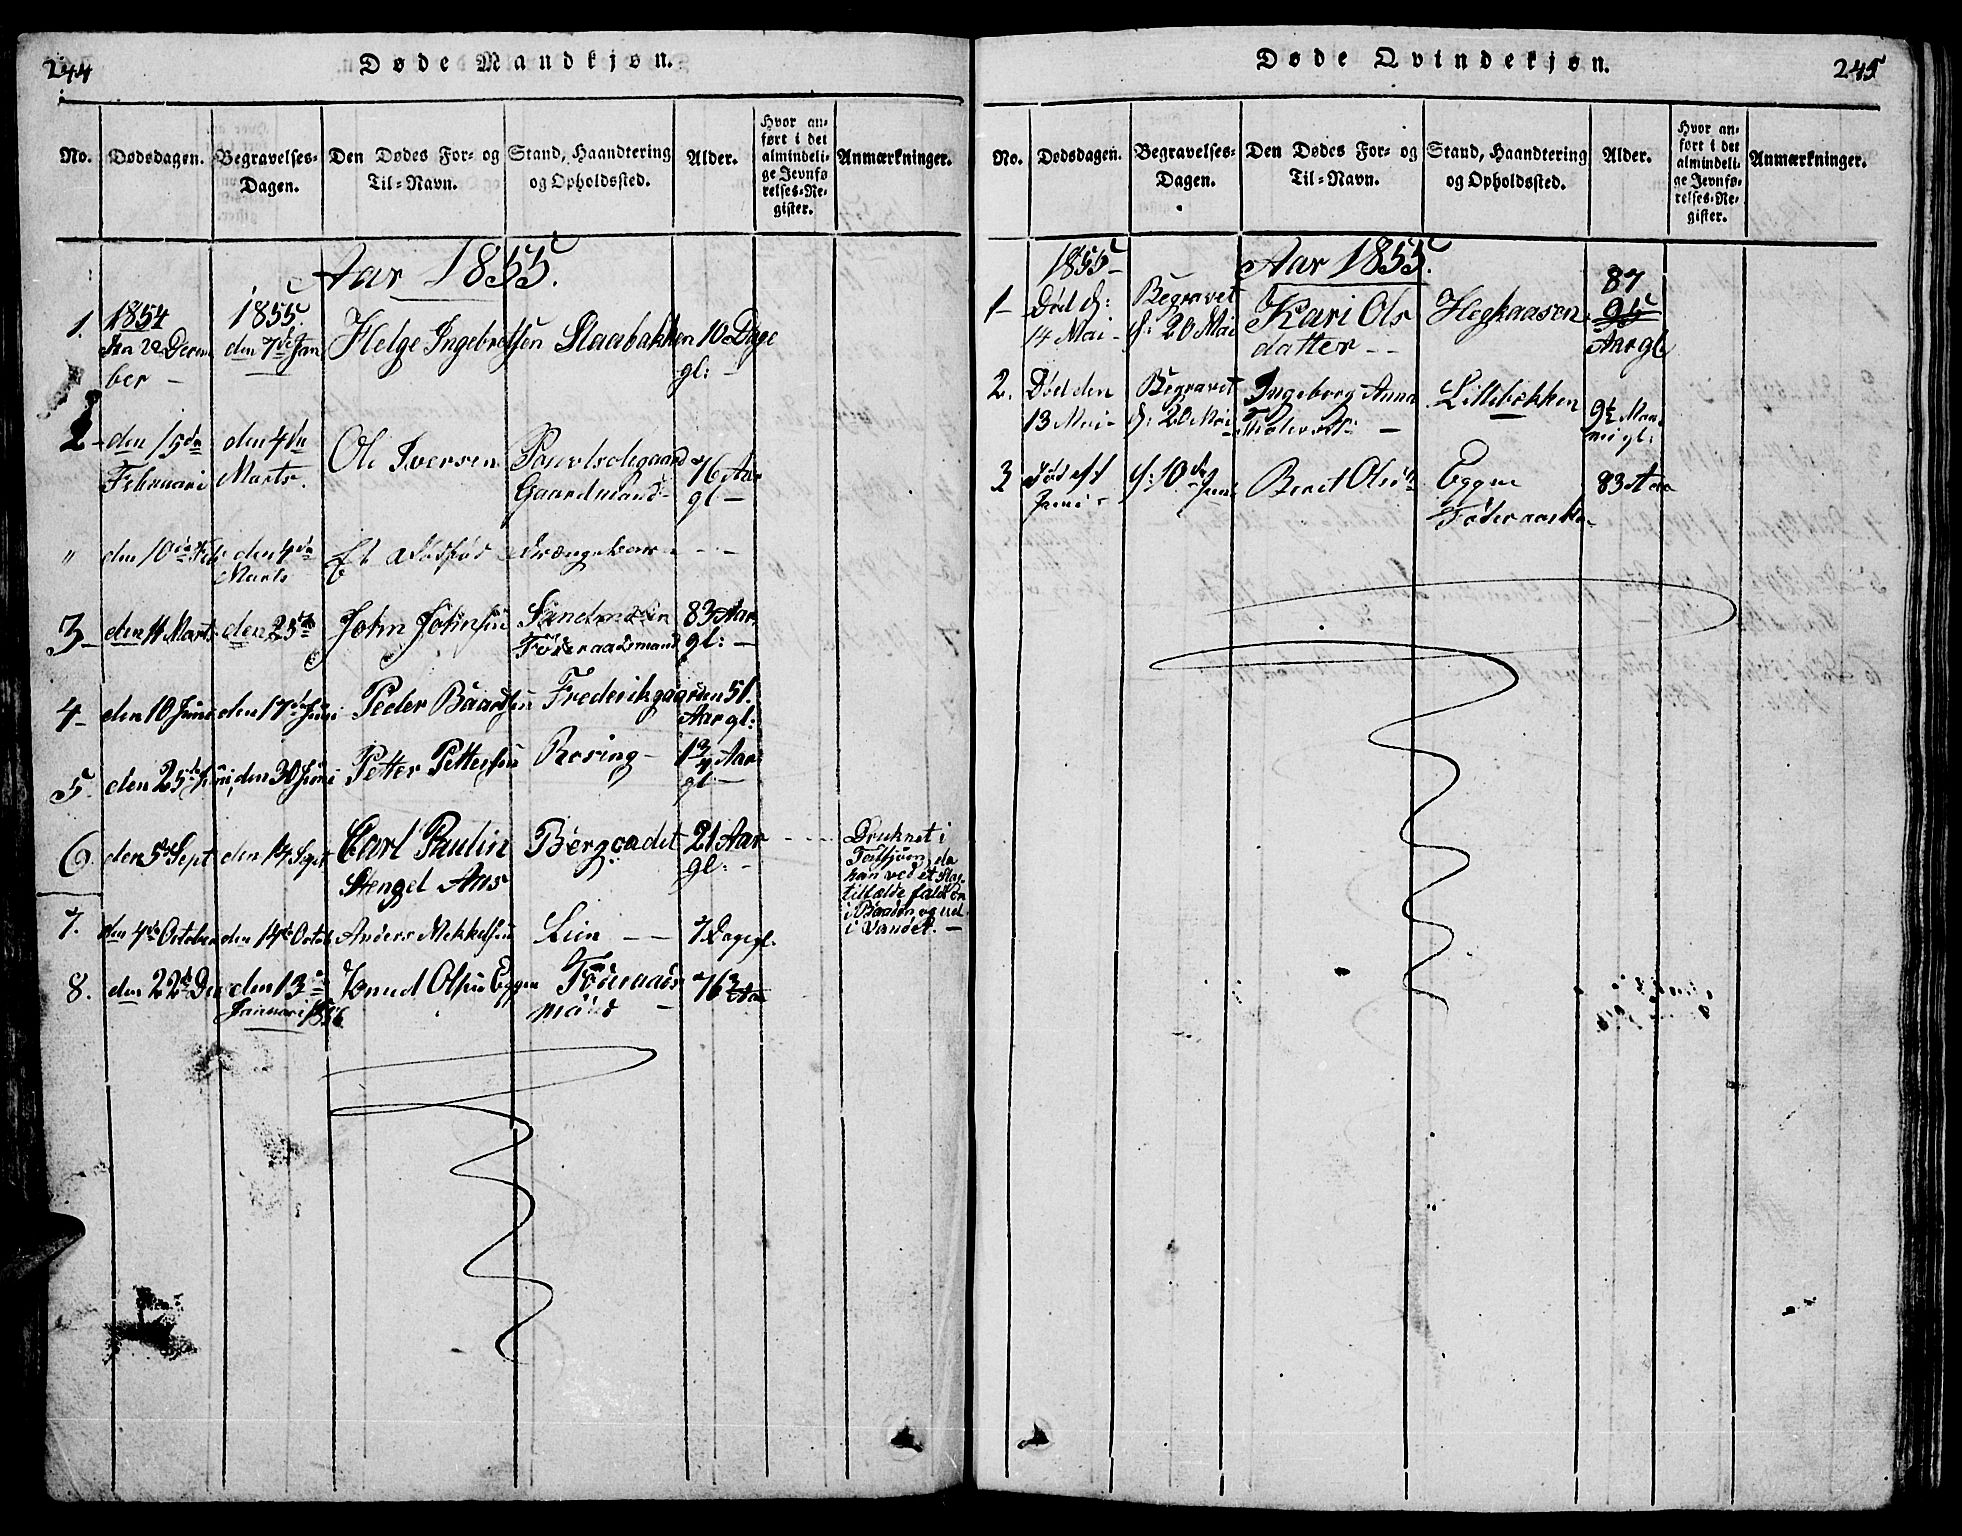 244
Døde Mandkjøn.
No. Dødsdagen. Begravelses-Dagen. Den Dødes For- og Til-Navn. Stand, Haandtering og Opholdssted. Alder. Hvor anført i det almindelige Jevnførelses-Register. Anmærkninger.
Aar 1855.
1. 1854 den 22 Decem 1855. den 7de Jan Helge Ingebretsen Slaabakken 10 Dage
ber - gl: -
2- den 15de den 4de Ole Iversen 76 Aar
Februari Marts. Gaardmand- gl-
" den 10de Feb den 4de Et dødfød - - -
Marts
3- den 11 Marts den 25de John Johnsen Sandmoen 83 Aar
Føderaadsmand gl: -
4- den 10 Juni den 17de Juni Peder Baardsen Frederikgaarden 51.
Aar gl:
5. den 25de Juni, den 30 Juni Petter Pettersen Rosing- 1 3/4 Aar
gl-
6. den 5de Sept den 14 Sept Carl Paulin Bergcadet 21 Aar Druknet i
Stengel Aas gl: - da
han ved et Slag-
tilfælde faldt om
i Baaden og ud
i Vandet. -
7. den 4de October den 14de Octob Anders Mikkelsen Lien - - 7 Dage gl.
8. den 22de Dec den 13de Knud Olsen Eggen Føderaads 76 3/4 Aar
Januari 1856 mand -
245
Døde Qvindekjøn.
No. Dødsdagen. Begravelses-Dagen. Den Dødes For- og Til-Navn. Stand, Haandtering og Opholdssted. Alder. Hvor anført i det almindelige Jevnførelses-Register. Anmærkninger.
1855- Aar 1855.
1- Død d: Begravet Kari Ols Hegkaasen 87 95
14 Mai- d: 20 Mai datter - - Aar gl
2. Død den Begravet Ingeborg Anna Lillebækken 9½ Maa
13 Mai- d: 20 Mai - ned gl:
3 Død d: 1 d: 10de Juni Beret Olsdtr Eggen 83 Aar
Juni -